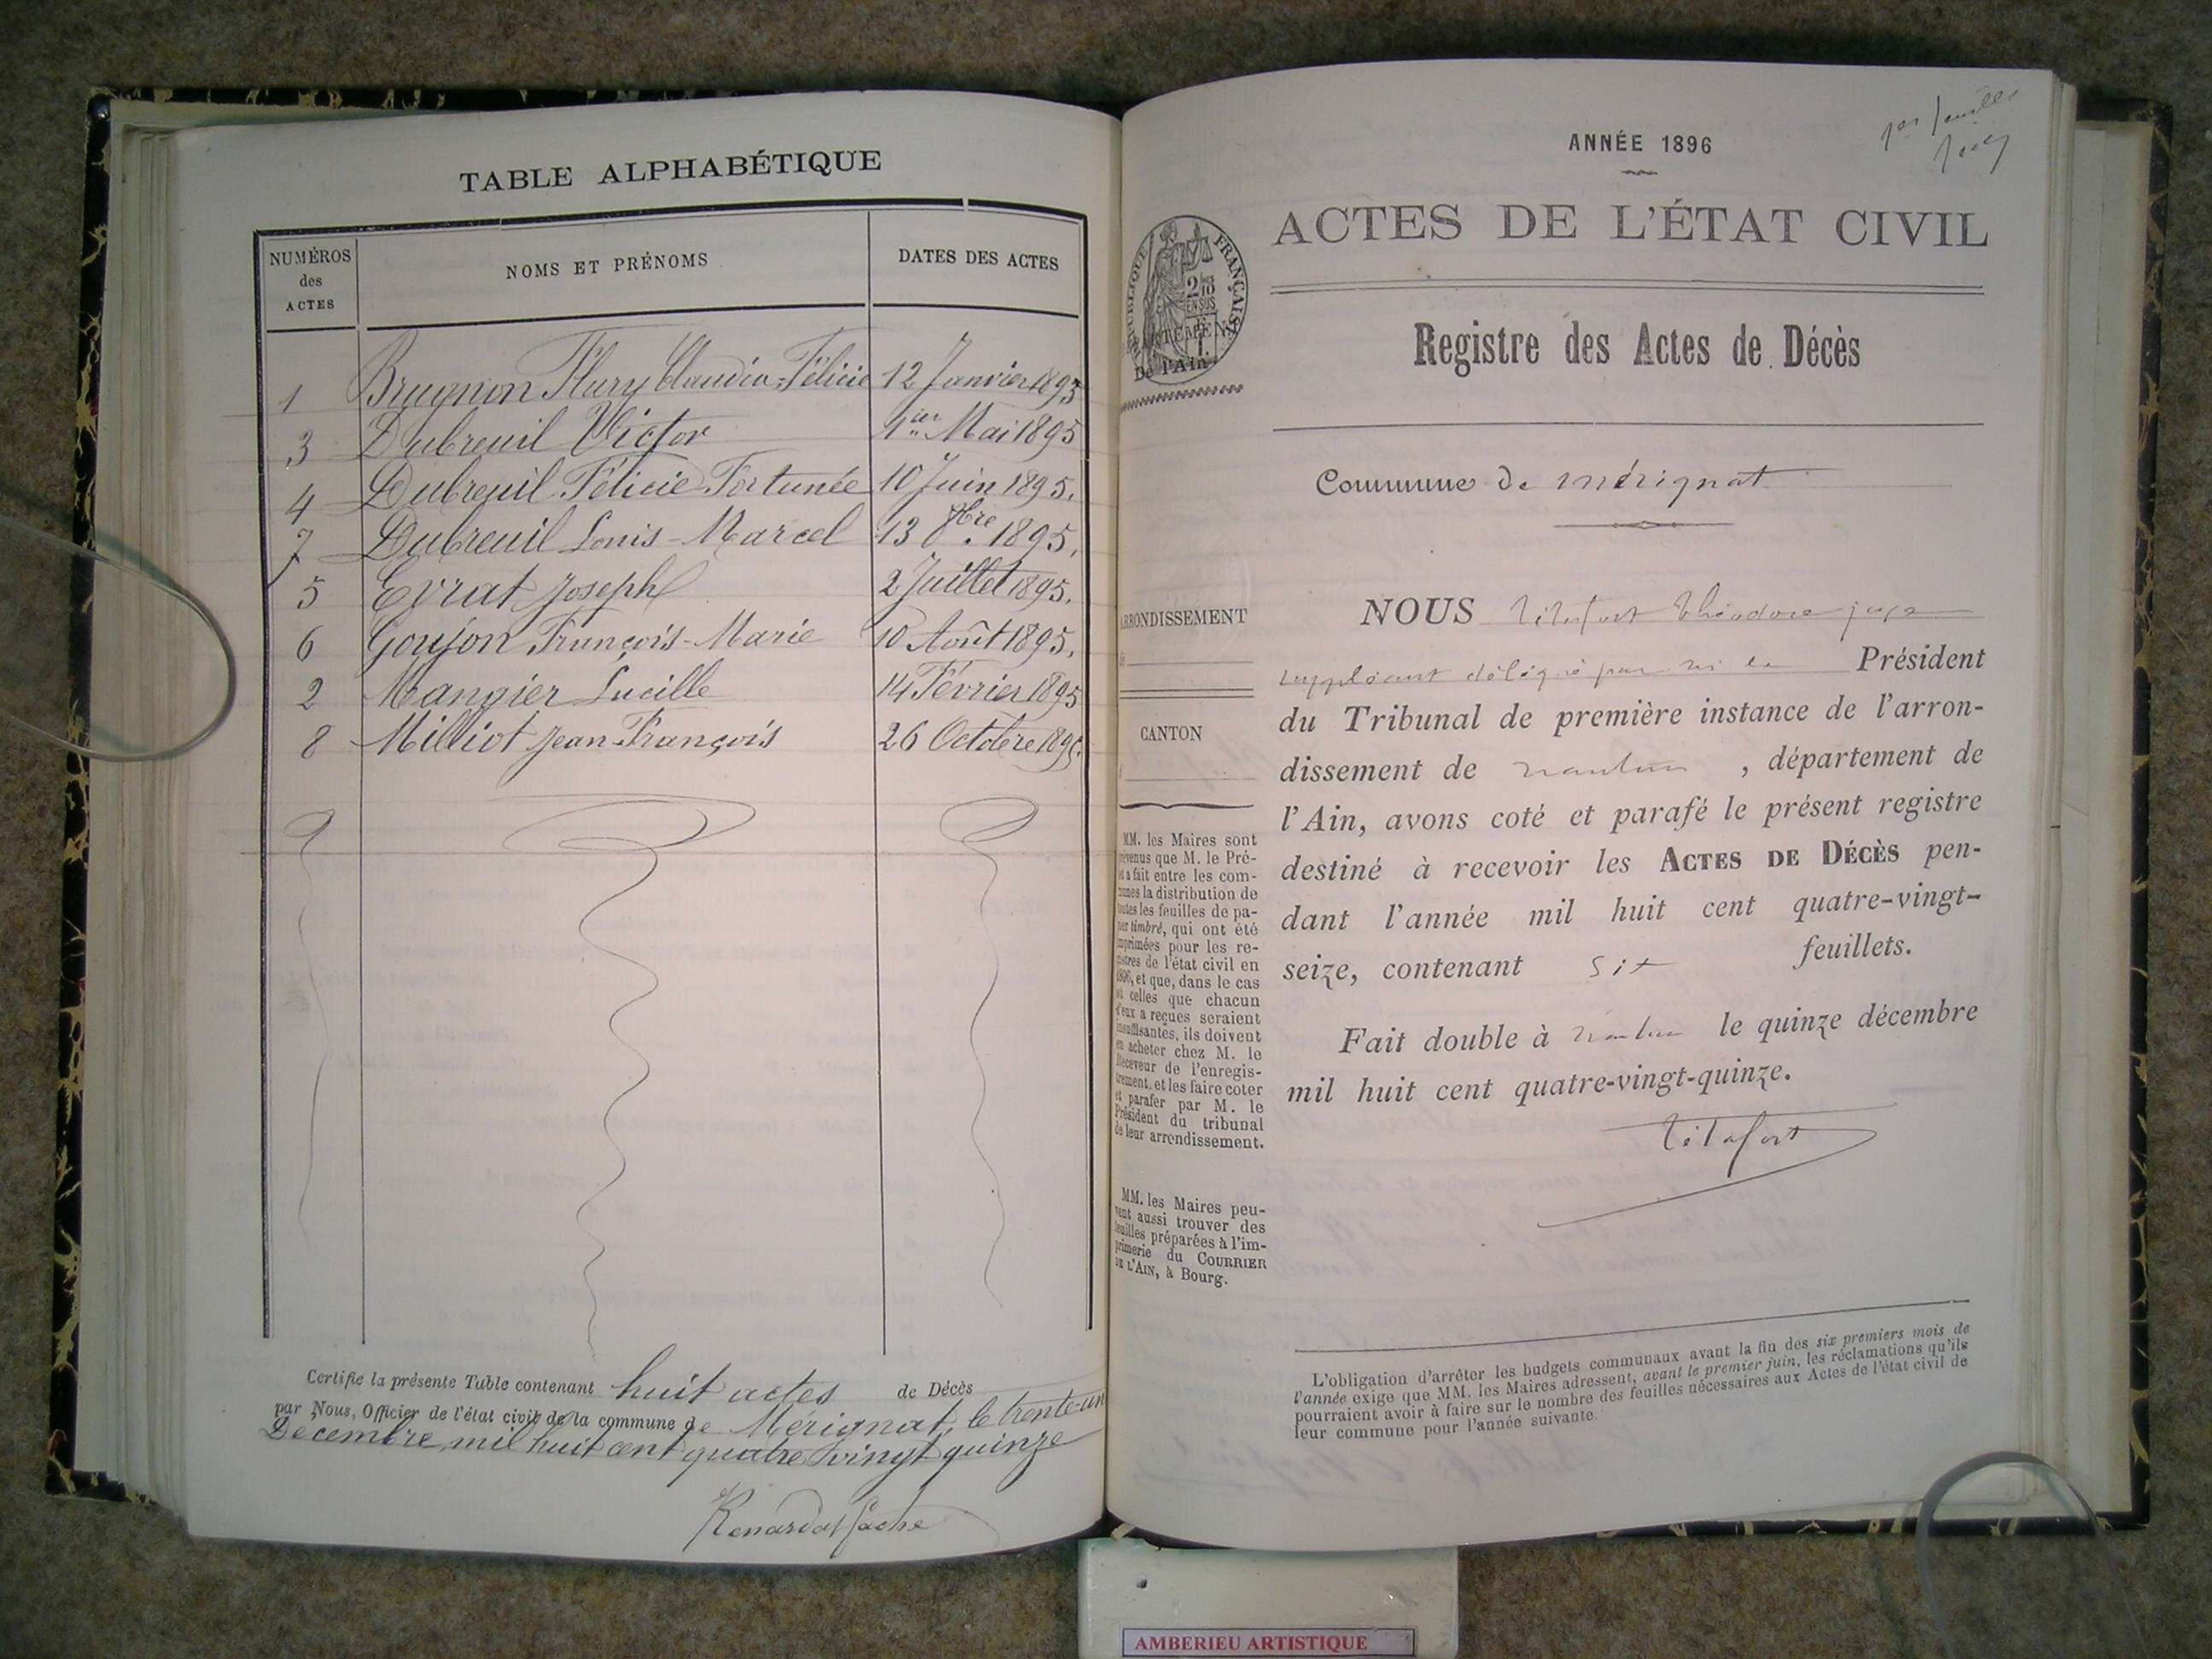 TABLE ALPHABÉTIQUE
NUMÉROS des ACTES
NOMS ET PRÉNOMS
DATES DES ACTES
1 Brugnon Flury Claudia-Félicie 12 Janvier 1895
3 Dubreuil Victor 1er Mai 1895
4 Dubreuil Félicie Fortunée 10 Juin 1895.
7 Dubreuil Louis-Marcel 13 8bre. 1895,
5 Evrat Joseph 2 Juillet 1895.
6 Goujon François-Marie 10 Août 1895,
2 Mangier Lucille 14 Février 1895
8 Milliot Jean-François 26 Octobre 1895.
Certifie la présente Table contenant huit actes de Décès
par Nous, Officier de l'état civil de la commune de Mérignat, le trente-un
Décembre mil huit cent quatre vingt quinze
ANNÉE 1896
ACTES DE L'ÉTAT CIVIL
RÉPUBLIQUE FRANÇAISE
2/10 EN SUS
DÉPARTEMENT
De l'Ain
Registre des Actes de Décès
Commune de Mérignat
ARRONDISSEMENT
CANTON
NOUS Théodore juge
suppléant délégué par M le Président
du Tribunal de première instance de l'arron-
dissement de nantua, département de
l'Ain, avons coté et parafé le présent registre
destiné à recevoir les ACTES DE DÉCÈS pen-
dant l'année mil huit cent quatre-vingt-
seize, contenant six feuillets.
Fait double à nantua le quinze décembre
mil huit cent quatre-vingt-quinze.
MM. les Maires sont
prévenus que M. le Pré-
et a fait entre les com-
munes la distribution de
toutes les feuilles de pa-
pier timbré, qui ont été
imprimées pour les re-
gistres de l'état civil en
1896, et que, dans le cas
où celles que chacun
d'eux a reçues seraient
insuffisantes, ils doivent
en acheter chez M. le
Receveur de l'enregis-
trement, et les faire coter
et parafer par M. le
Président du tribunal
de leur arrondissement.
MM. les Maires peu-
vent aussi trouver des
feuilles préparées à l'im-
primerie du COURRIER
DE L'AIN, à Bourg.
L'obligation d'arrêter les budgets communaux avant la fin des six premiers mois de
l'année exige que MM. les Maires adressent, avant le premier juin, les réclamations qu'ils
pourraient avoir à faire sur le nombre des feuilles nécessaires aux Actes de l'état civil de
leur commune pour l'année suivante.
AMBERIEU ARTISTIQUE